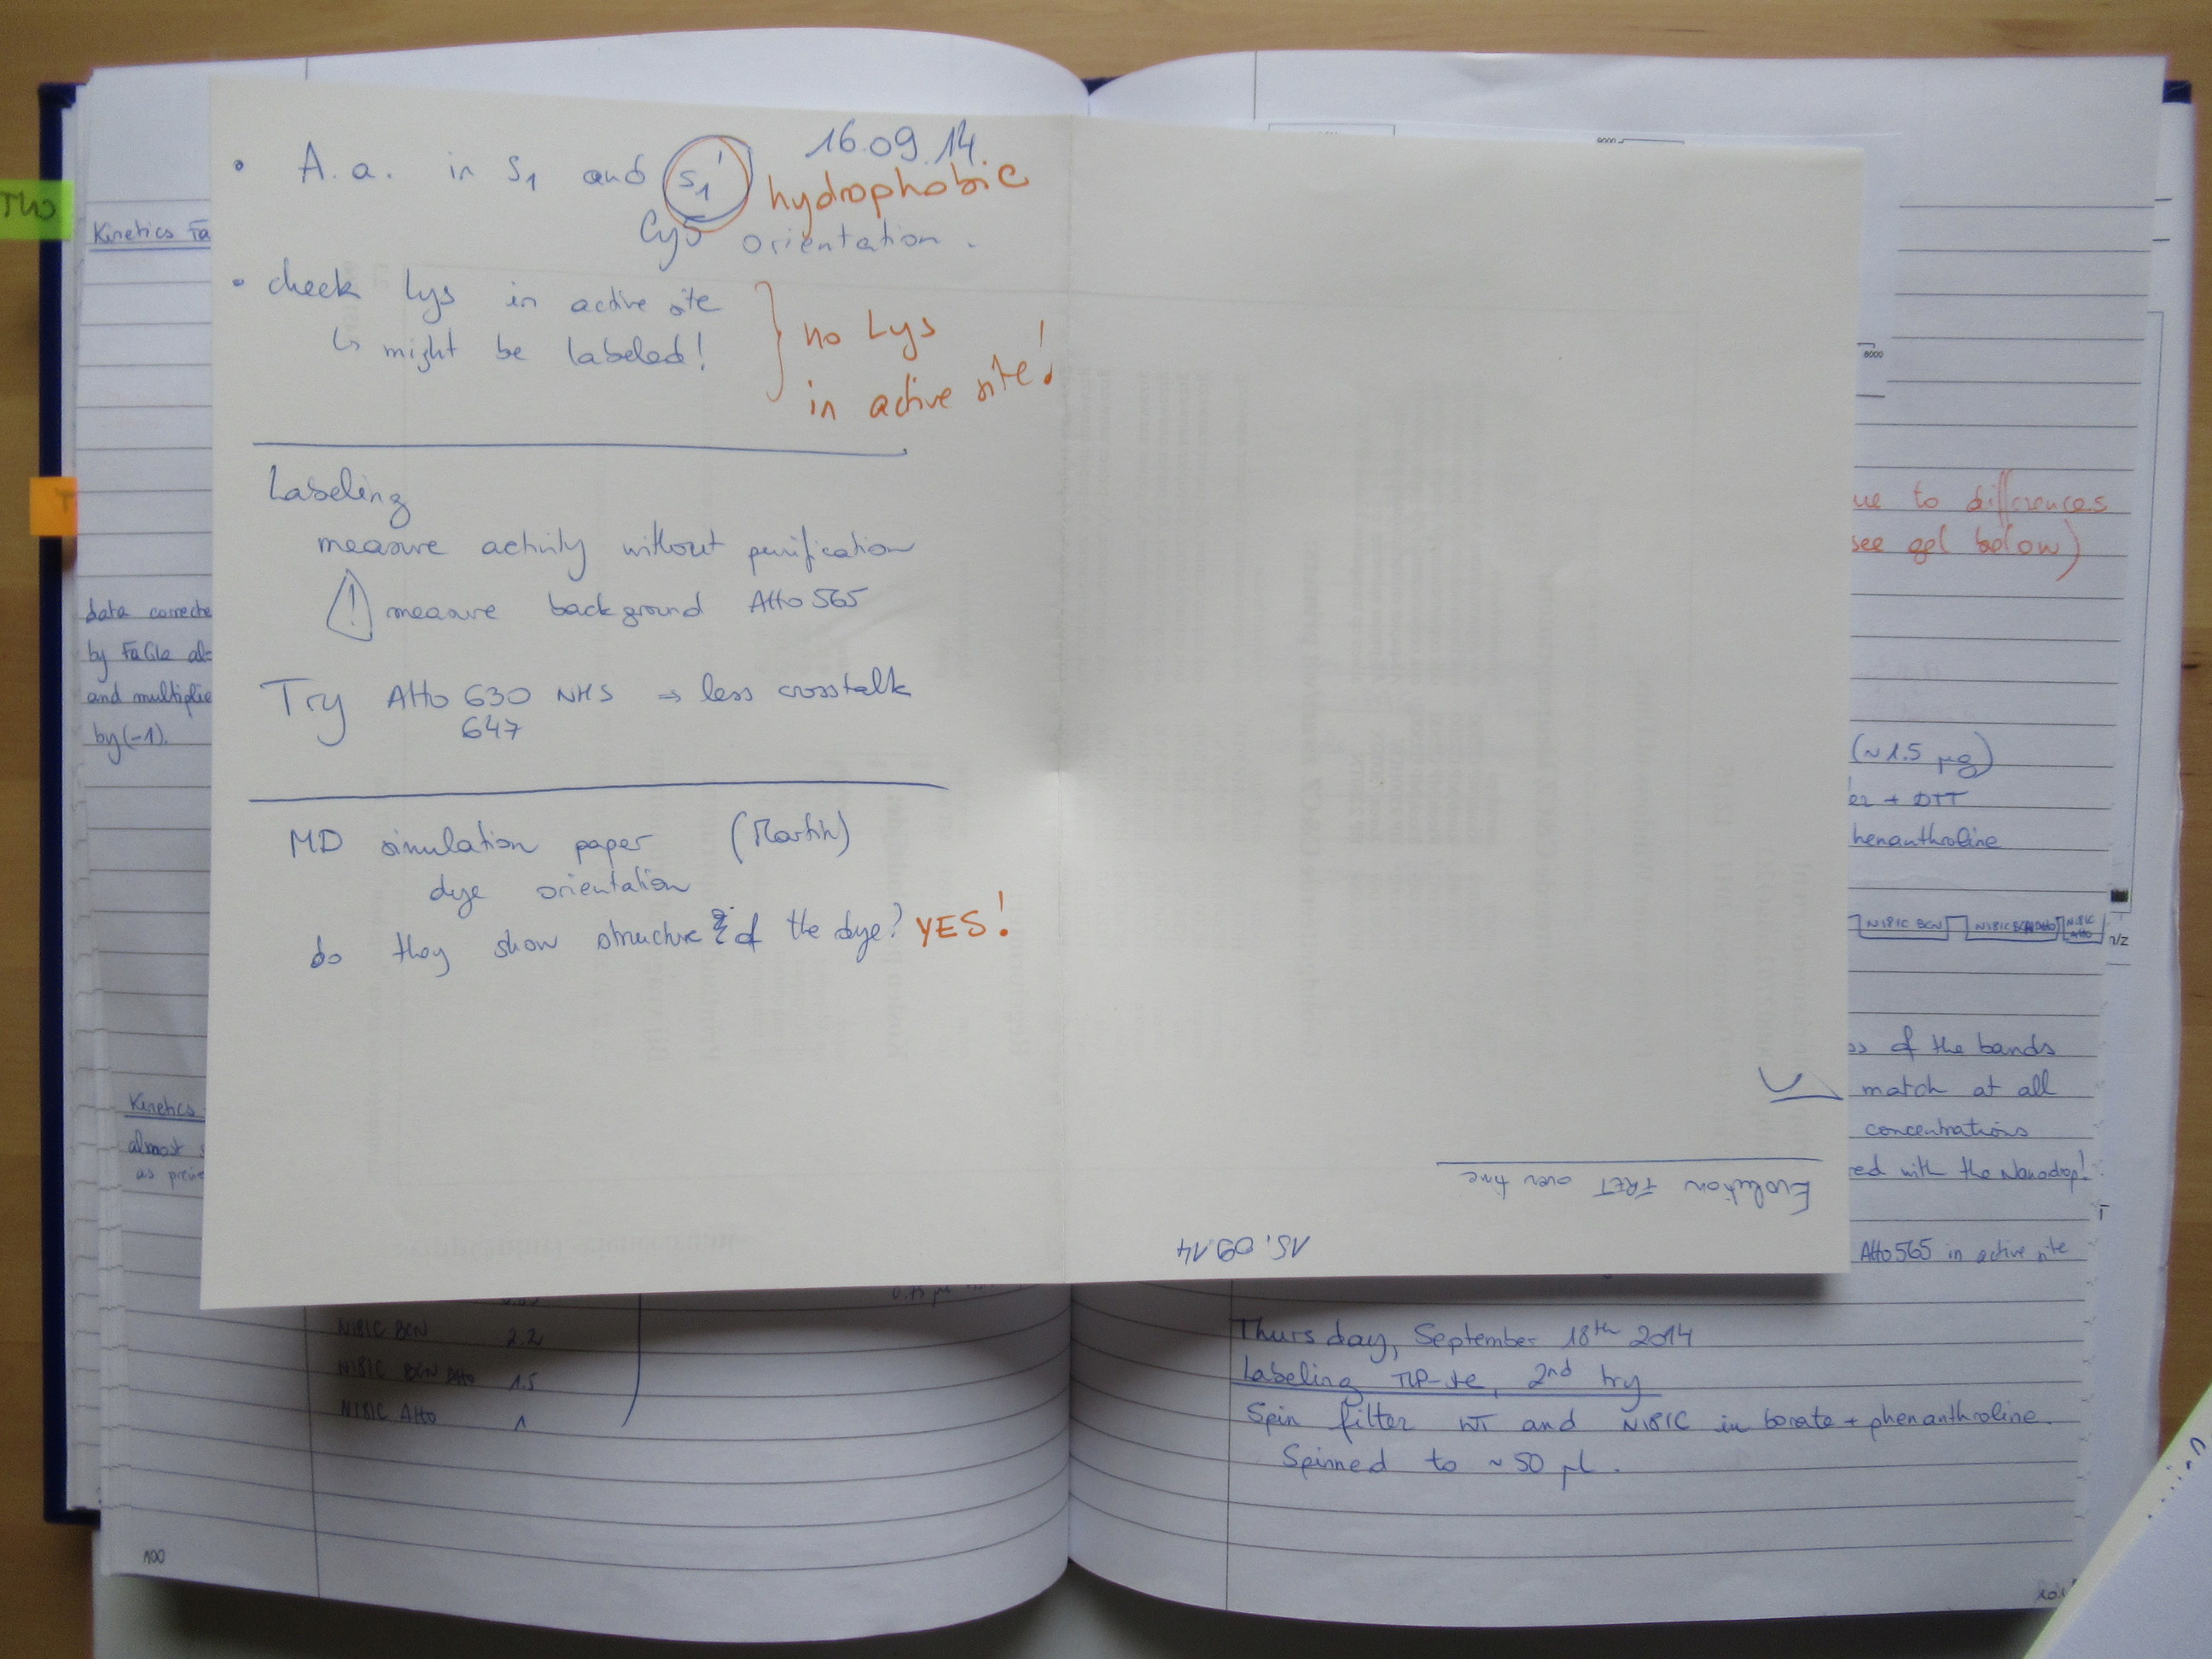 16.09.14
• A.a. in S1 and S1' hydrophobic
Cy5 orientation.
• check Lys in active site
↳ might be labeled!
no Lys
in active site!
Labeling
measure activity without purification
! measure background Atto 565
Try Atto 630 NHS ⇒ less crosstalk
647
MD simulation paper (Martin)
dye orientation
do they show structure of the dye? YES!
15.09.14
Evolution FRET over time
Kinetics Fa
data correcte
by FaGla al-
and multiplie
by (-1).
Kinetics
almost
as previ
N181C BCN 2.2
N181C BCN Atto 1.5
N181C Atto 1
100
8000
8000
ue to differences
see gel below)
(~1.5 µg)
er + DTT
henanthroline
N181C BCN
N181C BCN Atto
N181C Atto
n/z
ss of the bands
match at all
concentrations
red with the Nanodrop!
Atto565 in active site
Thursday, September 18th 2014
Labeling TLP-ste, 2nd try
Spin filter WT and N181C in borate + phenanthroline.
Spinned to ~50 µL.